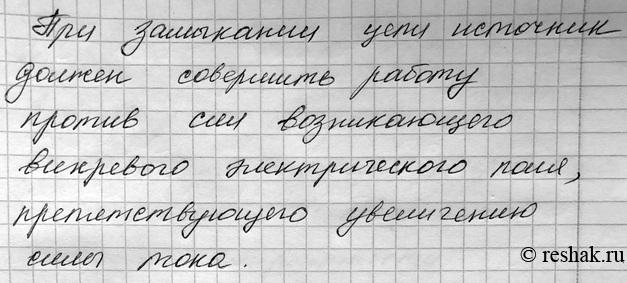 При замыкании цепи источник
должен совершить работу
против сил возникающего
вихревого электрического поля,
препятствующего увеличению
силы тока.
© reshak.ru